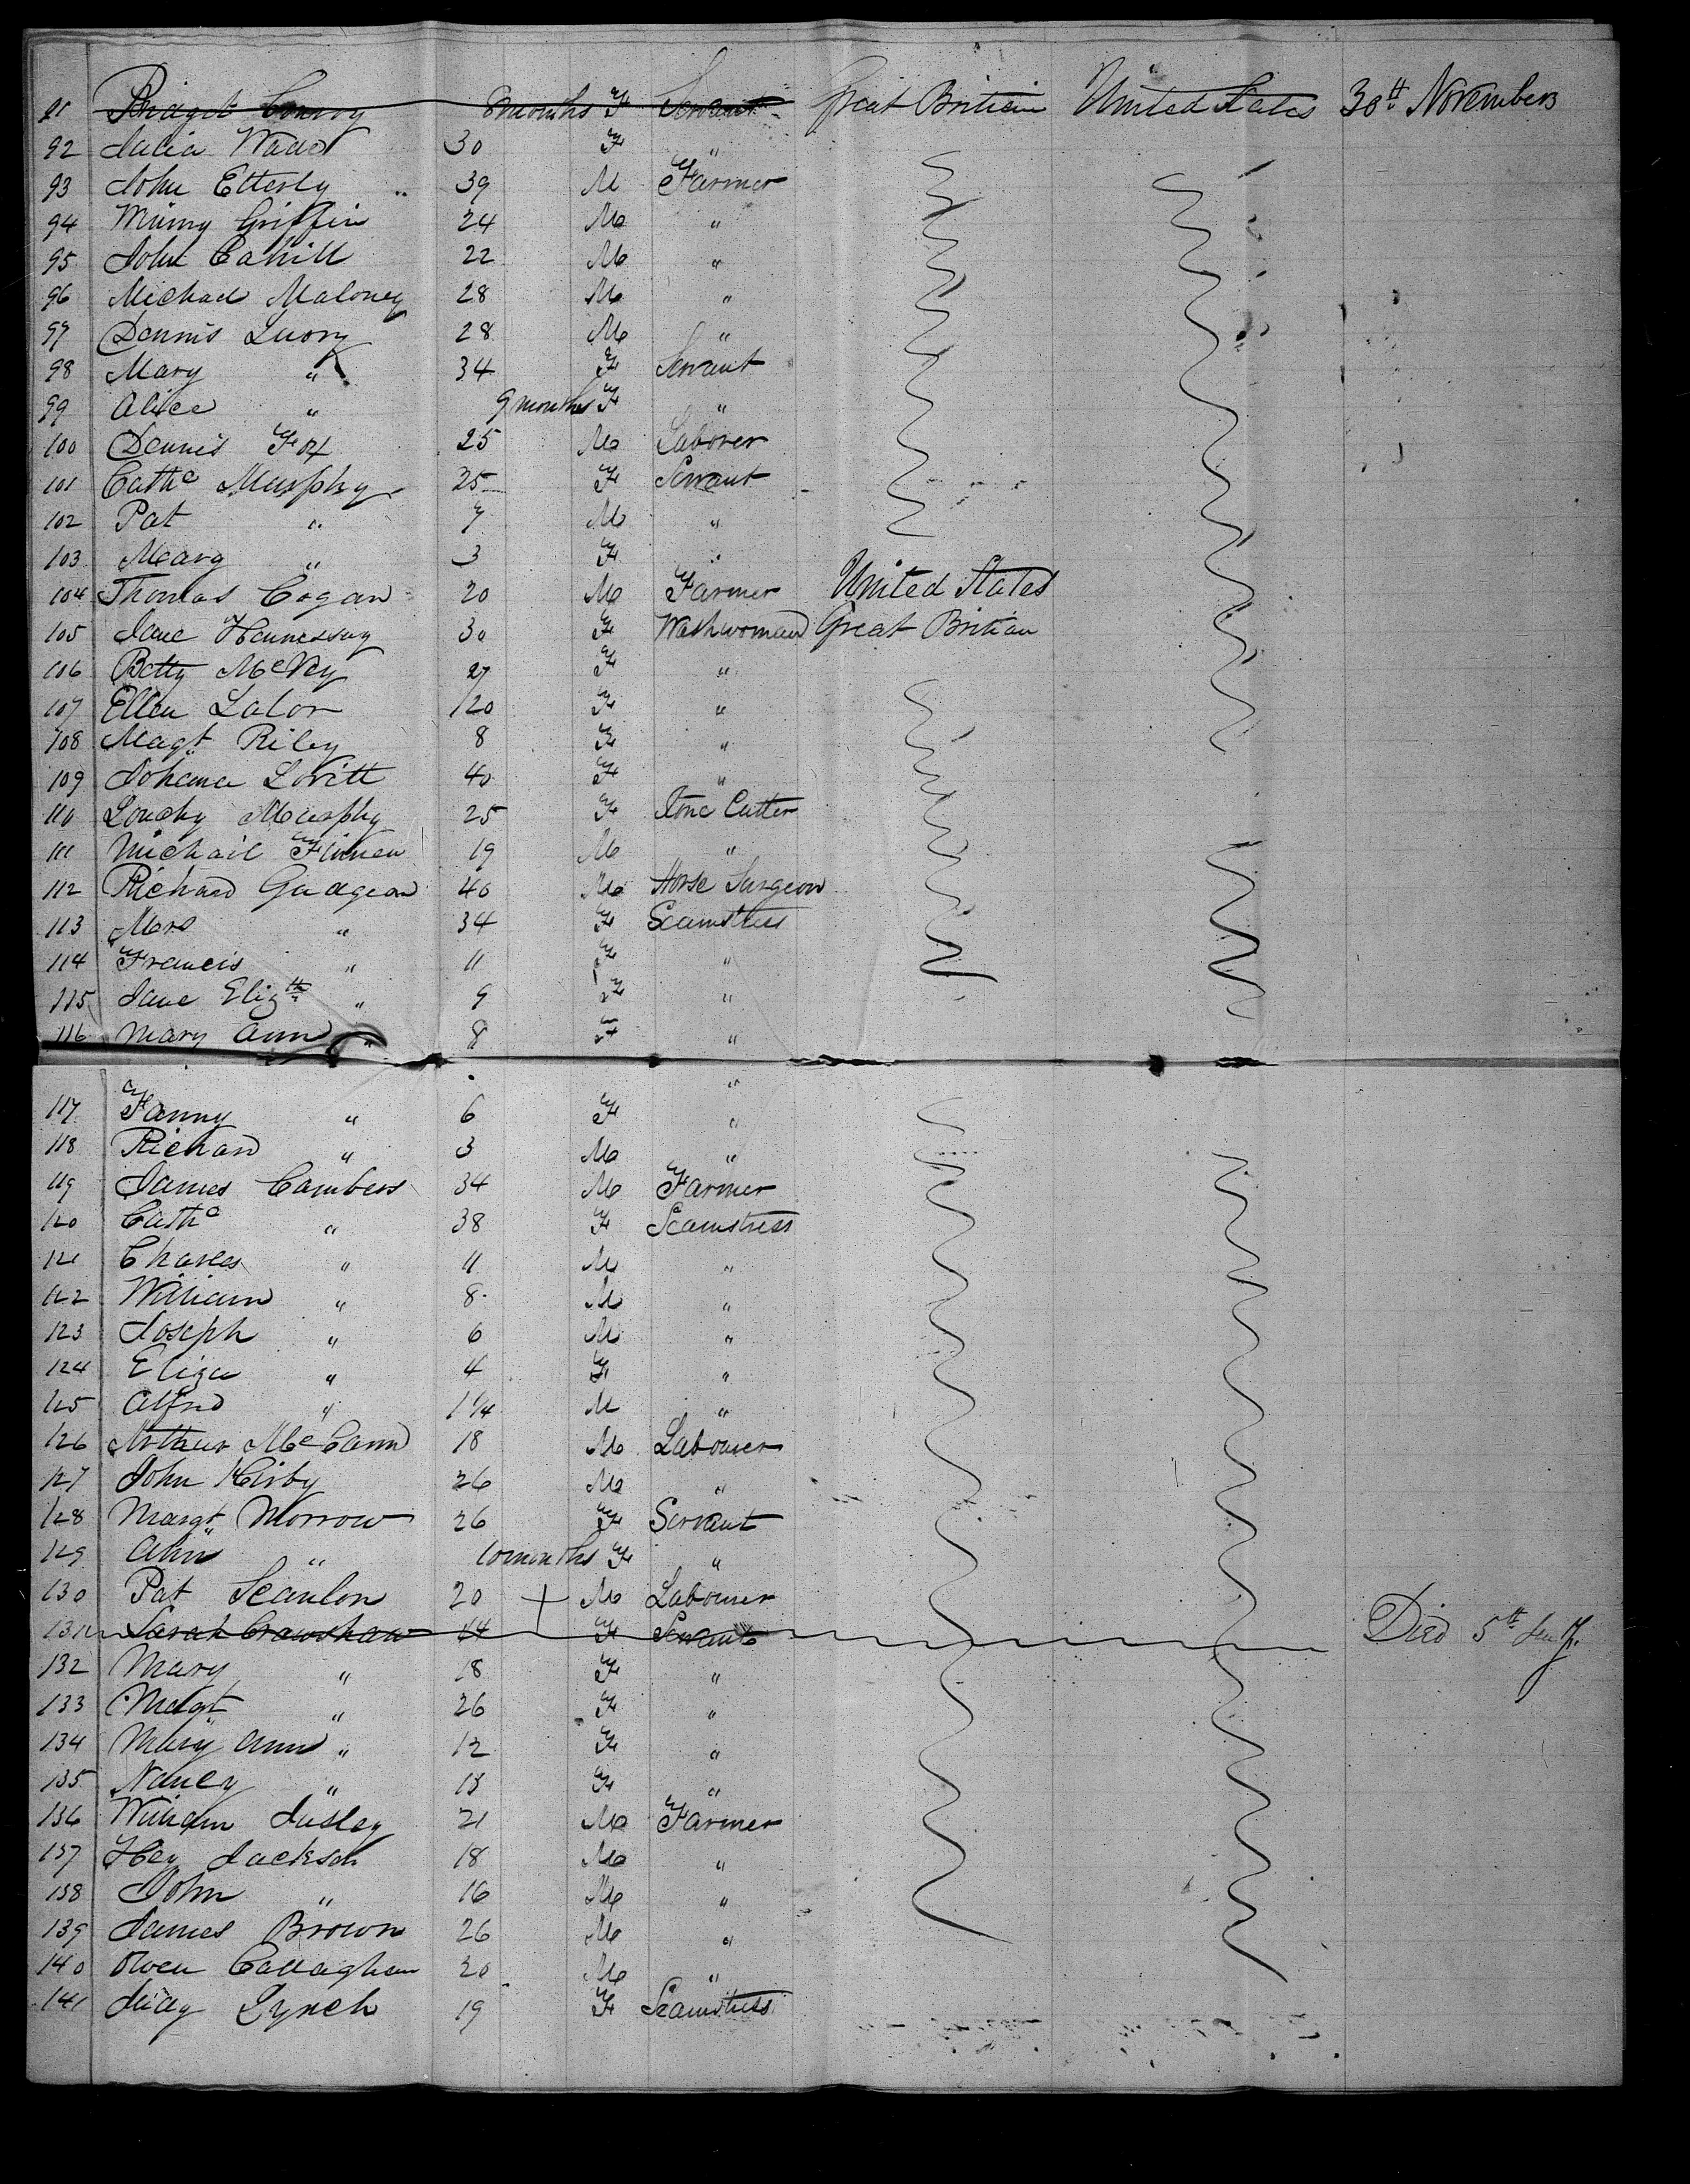 91 Bridget Conroy 8 months F Servant Great Britian United States 30th November
92 Julia Wade 30 F "
93 John Etterly 39 M Farmer
94 Griffin 24 M "
95 John Cahill 22 M "
96 Michael Maloney 28 M "
97 Dennis 28 M "
98 Mary " 34 F Servant
99 Alice " 9 months F "
100 Dennis Fox 25 M Laborer
101 Cathe Murphy 25 F Servant
102 Pat " 7 M "
103 Mary " 3 F "
104 Thomas Cogan 20 M Farmer United States
105 Jane Hennessuy 30 F Washwoman Great Britian
106 Betty McVey 27 F "
107 Ellen Lalor 20 F "
108 Magt Riley 8 F "
109 Johana Lovitt 40 F "
110 Murphy 25 F Stone Cutter
111 Michail 19 M "
112 Richard Gudgeon 40 M Horse Surgeon
113 Mrs " 34 F Seamstress
114 Francis " 11 F "
115 Jane Elizth " 9 F "
116 Mary Ann " 8 F "
117 Fanny " 6 F "
118 Richard " 3 M "
119 James Cambers 34 M Farmer
120 Cathe " 38 F Seamstress
121 Charles " 11 M "
122 William " 8 M "
123 Joseph " 6 M "
124 Eliza " 4 F "
125 Alfred " 1 1/4 M "
126 Arthur McCann 18 M Labourer
127 John Kirby 26 M "
128 Margt Morrow 26 F Servant
129 Ann " 10 months F "
130 Pat Scanlon 20 + M Labourer
131 Sarah Crawshaw 14 F Servant Died 5th
132 Mary " 18 F "
133 Magt " 26 F "
134 Mary Ann " 12 F "
135 Nancy " 13 F "
136 William 21 M Farmer
137 Hey Jackson 18 M "
138 John " 16 M "
139 James Brown 26 M "
140 Owen Callaghan 20 M "
141 Judy Lynch 19 F Seamstress